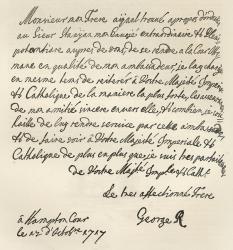 Monsieur mon Frere aiant trouvé apropos d'ordonner
au Sieur Stanjan mon Envoyé extraordinaire & Ple
potentiaire aupres de vous de se rendre à la Cour
mane en qualité de mon ambassadeur je luy charge
en mesme tems de reiterer à Vostre Majesté Imperiale
& Catholique de la maniere la plus forte, les
de mon amitié sincere envers elle, & combien je
de luy rendre service par cete ambassade
& de faire voir à Vostre Majesté Imperiale &
Catholique de plus en plus que je suis tres parfaitement
de Vostre Majesté Imperiale & Cath.
le tres affectionné Frere
George R
à Hampton Cour
le 27 d'Octobre 1717